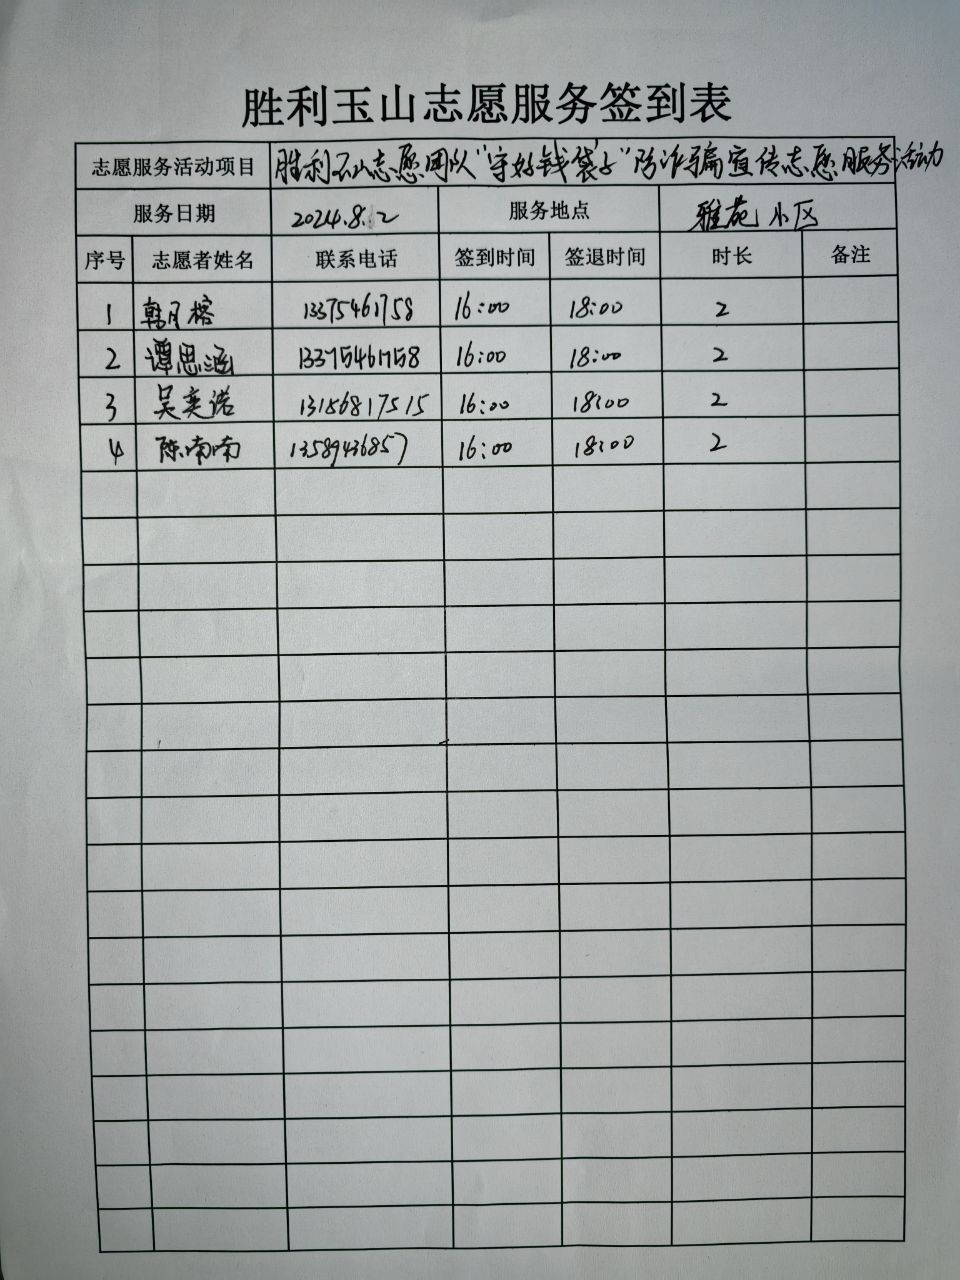 胜利玉山志愿服务签到表
志愿服务活动项目 胜利玉山志愿团队“守好钱袋子”防诈骗宣传志愿服务活动
服务日期 2024.8.2 服务地点 雅苑小区
序号 志愿者姓名 联系电话 签到时间 签退时间 时长 备注
1 韩月榕 13375461758 16:00 18:00 2
2 谭思涵 13375461758 16:00 18:00 2
3 吴奕诺 13156817515 16:00 18:00 2
4 陈喃喃 13589436857 16:00 18:00 2